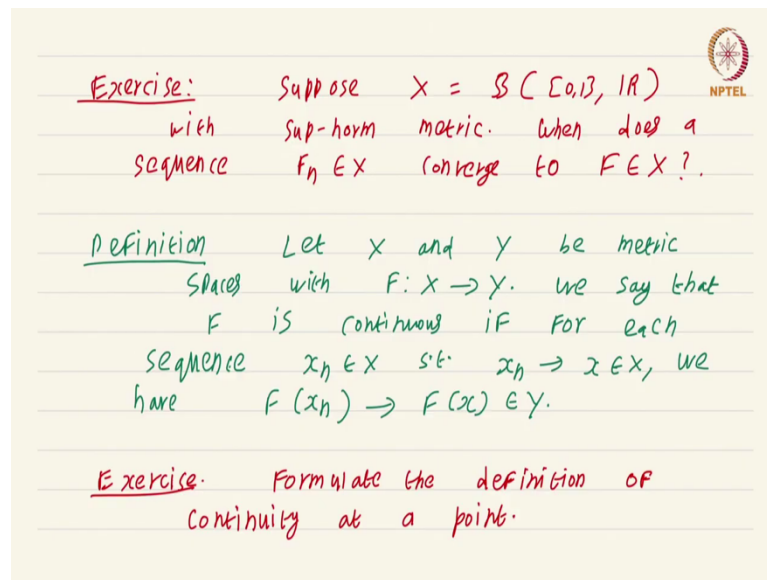 Exercise: Suppose X = B([0,1], IR)
NPTEL
with sup-norm metric. When does a
sequence Fn ∈ X converge to F ∈ X?.
Definition Let X and Y be metric
spaces with F: X → Y. We say that
F is continuous if for each
sequence xn ∈ X s.t. xn → x ∈ X, we
have F(xn) → F(x) ∈ Y.
Exercise. Formulate the definition of
continuity at a point.